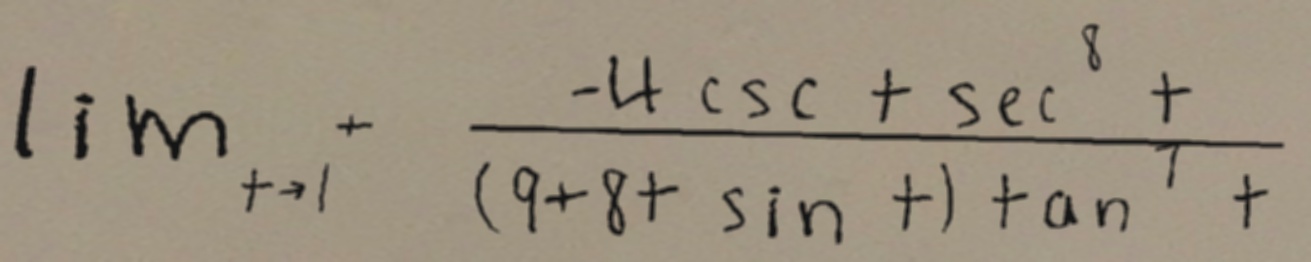 \lim_{t \to 1^+} \frac{-4 \csc t \sec^8 t}{(9+8t \sin t) \tan^7 t}